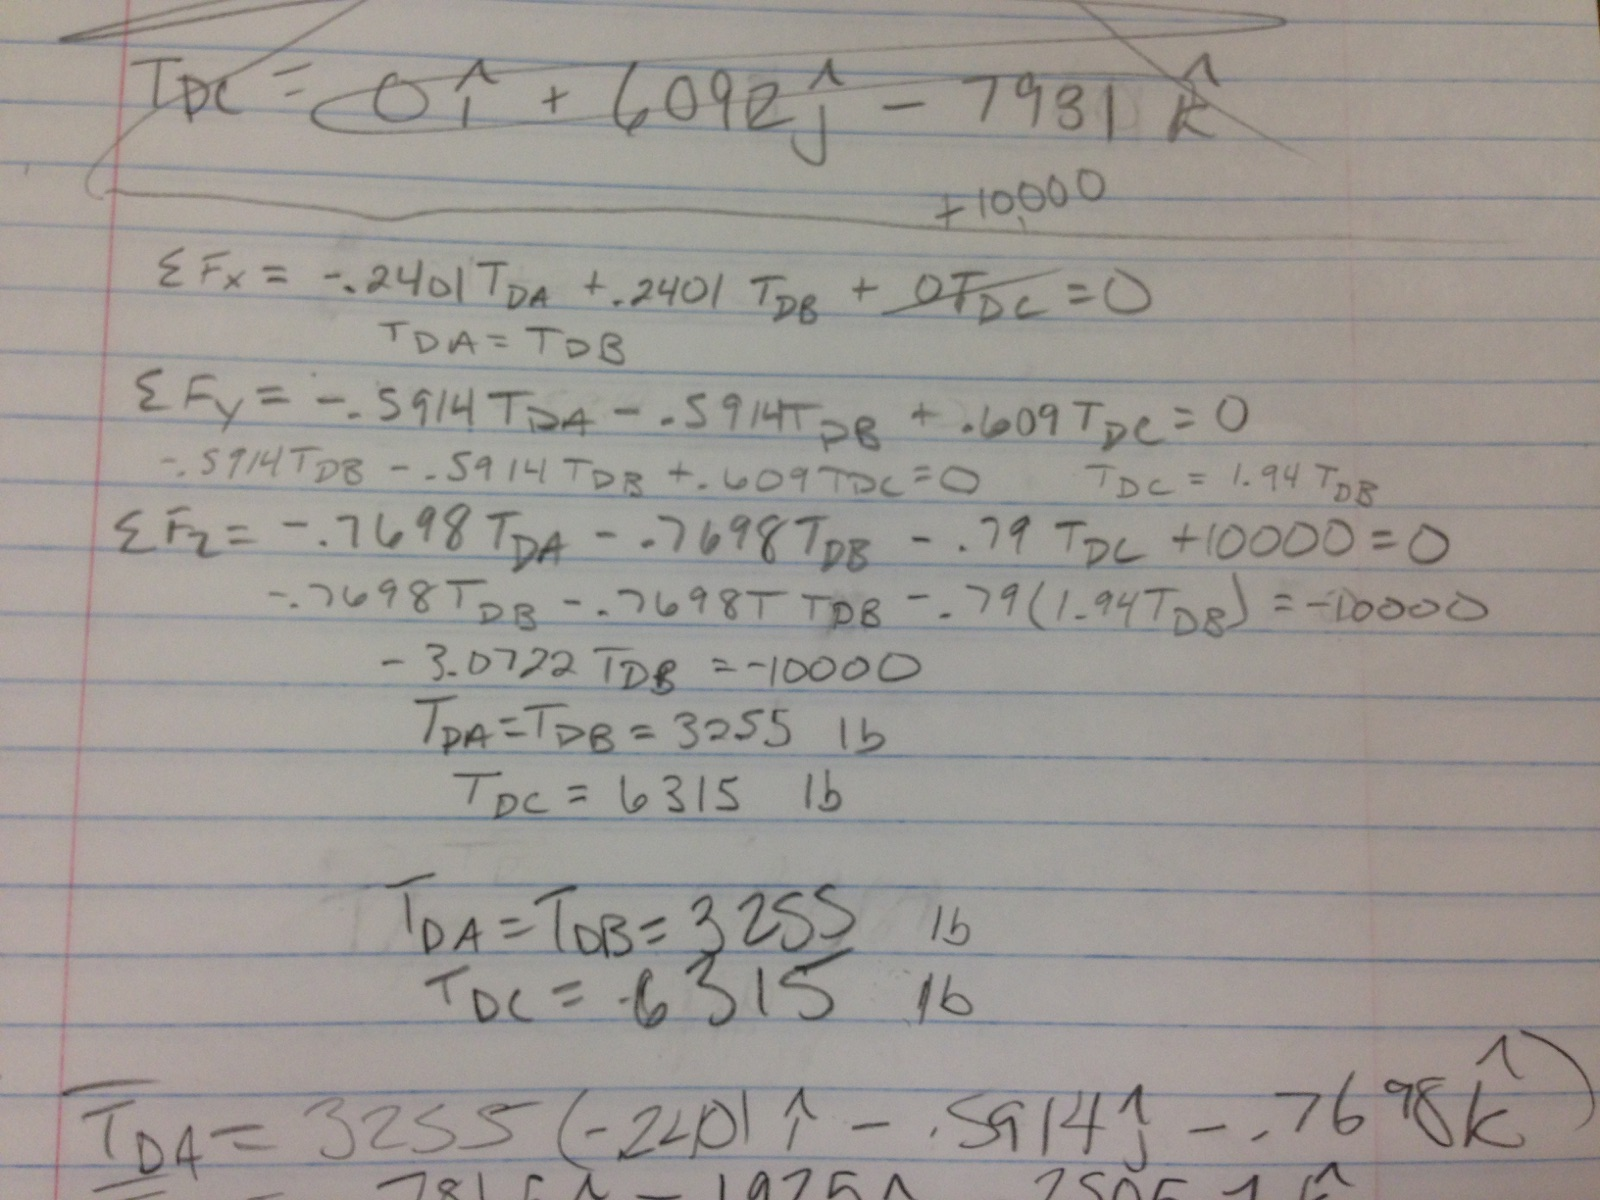 T_DC = 0î + 6092ĵ - 7931 k̂
+10,000
ΣFx = -.2401 T_DA + .2401 T_DB + 0T_DC = 0
T_DA = T_DB
ΣFy = -.5914 T_DA - .5914 T_DB + .609 T_DC = 0
-.5914 T_DB - .5914 T_DB + .609 T_DC = 0 T_DC = 1.94 T_DB
ΣFz = -.7698 T_DA - .7698 T_DB - .79 T_DC + 10000 = 0
-.7698 T_DB - .7698T T_DB - .79(1.94 T_DB) = -10000
-3.0722 T_DB = -10000
T_DA = T_DB = 3255 lb
T_DC = 6315 lb
T_DA = T_DB = 3255 lb
T_DC = 6315 lb
T_DA = 3255 (-.2401 î - .5914 ĵ - .7698 k̂)